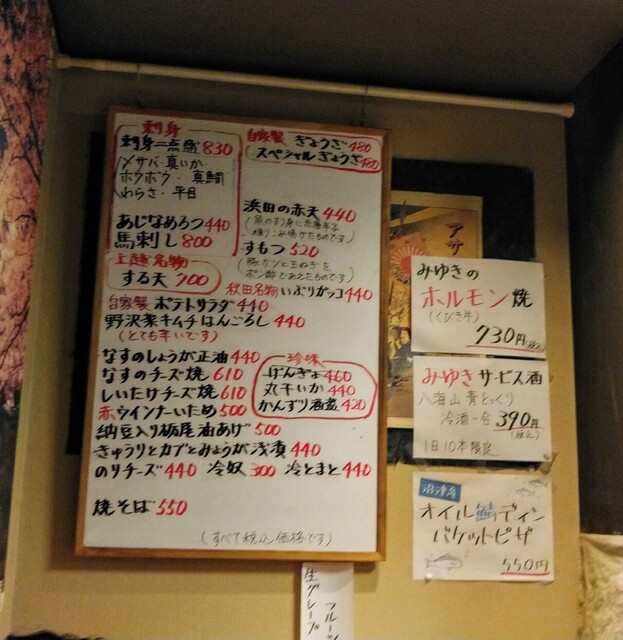 刺身
刺身二点盛 830
〆サバ・真いか・
ホウボウ・真鯛
わらさ・平目
あじなめろう 440
馬刺し 800
上越名物
する天 700
自家製 ぎょうざ 480
スペシャルぎょうざ 480
浜田の赤天 440
すもつ 520
秋田名物 いぶりガッコ 440
自家製 ポテトサラダ 440
野沢菜キムチはんごろし 440
(とても辛いです)
なすのしょうが正油 440
なすのチーズ焼 610
しいたけチーズ焼 610
赤ウインナーいため 500
納豆入り栃尾油あげ 500
きゅうりとカブとみょうが浅漬 440
のりチーズ 440 冷奴 300 冷とまと 440
焼そば 550
珍味
げんぎょ 460
丸干いか 440
かんずり酒盗 420
(すべて税込価格です)
アサ
みゆきの
ホルモン焼
(くびき牛)
730円(税込)
みゆきサービス酒
八海山 青とっくり
冷酒一合 390円
(税込)
1日10本限定
沼津産
オイル鯖ディン
バケットピザ
550円
フルーツ
生グレープ